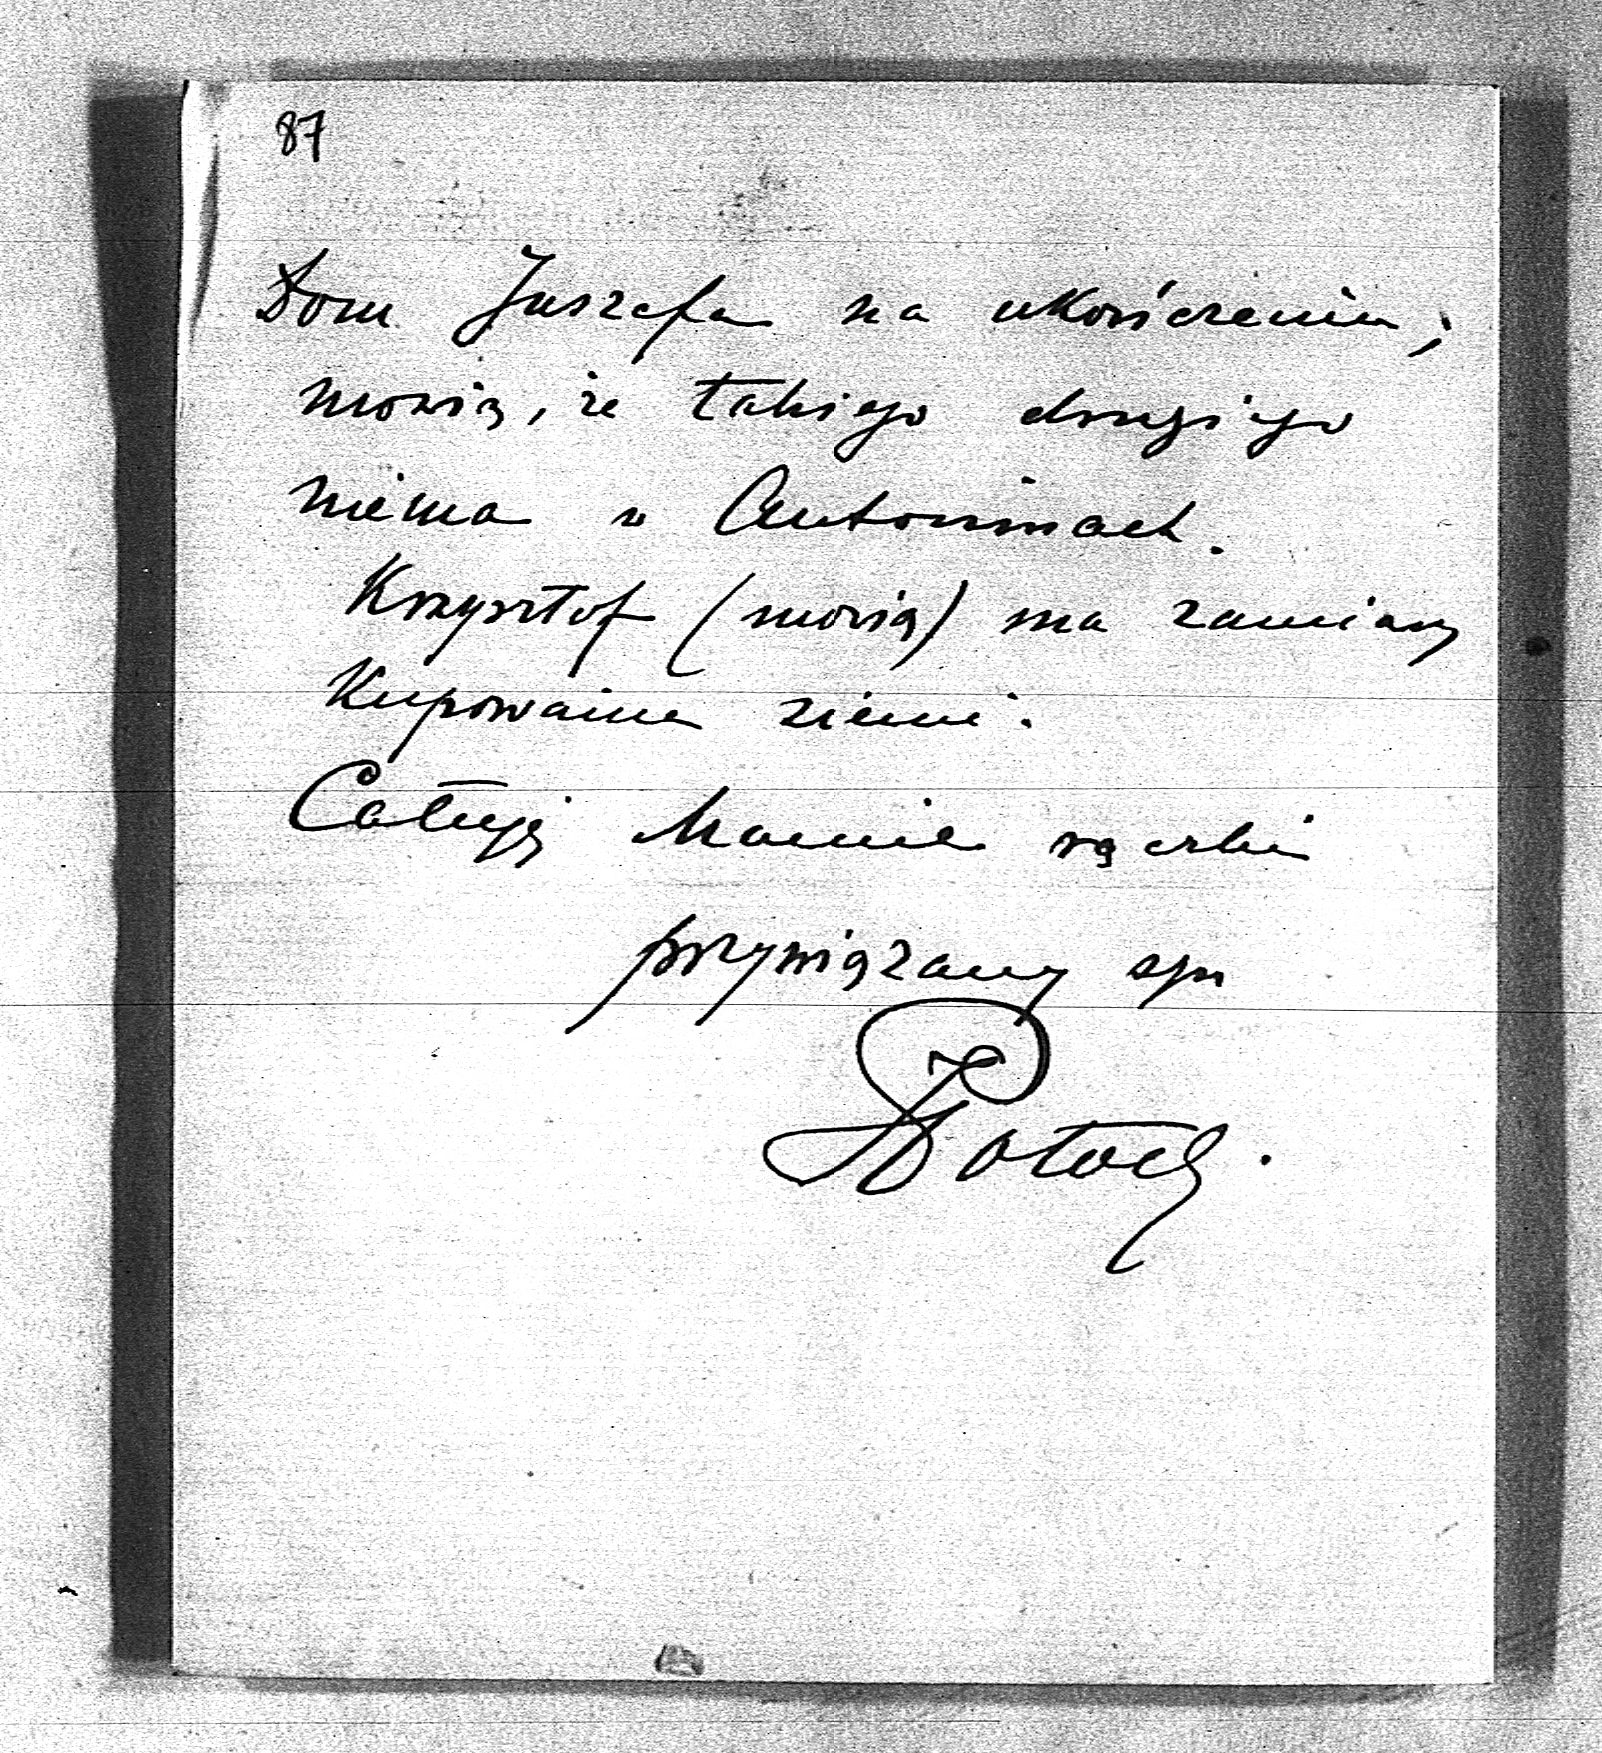 87
Dom Juszefa na ukończeniu,
mowią, że takiego drugiego
niema w Antoninach.
Krzysztof (mowią) ma zamiary
Kupowaine ziemi.
Całuję Mamie rączki
przywiązany syn
Potocki.